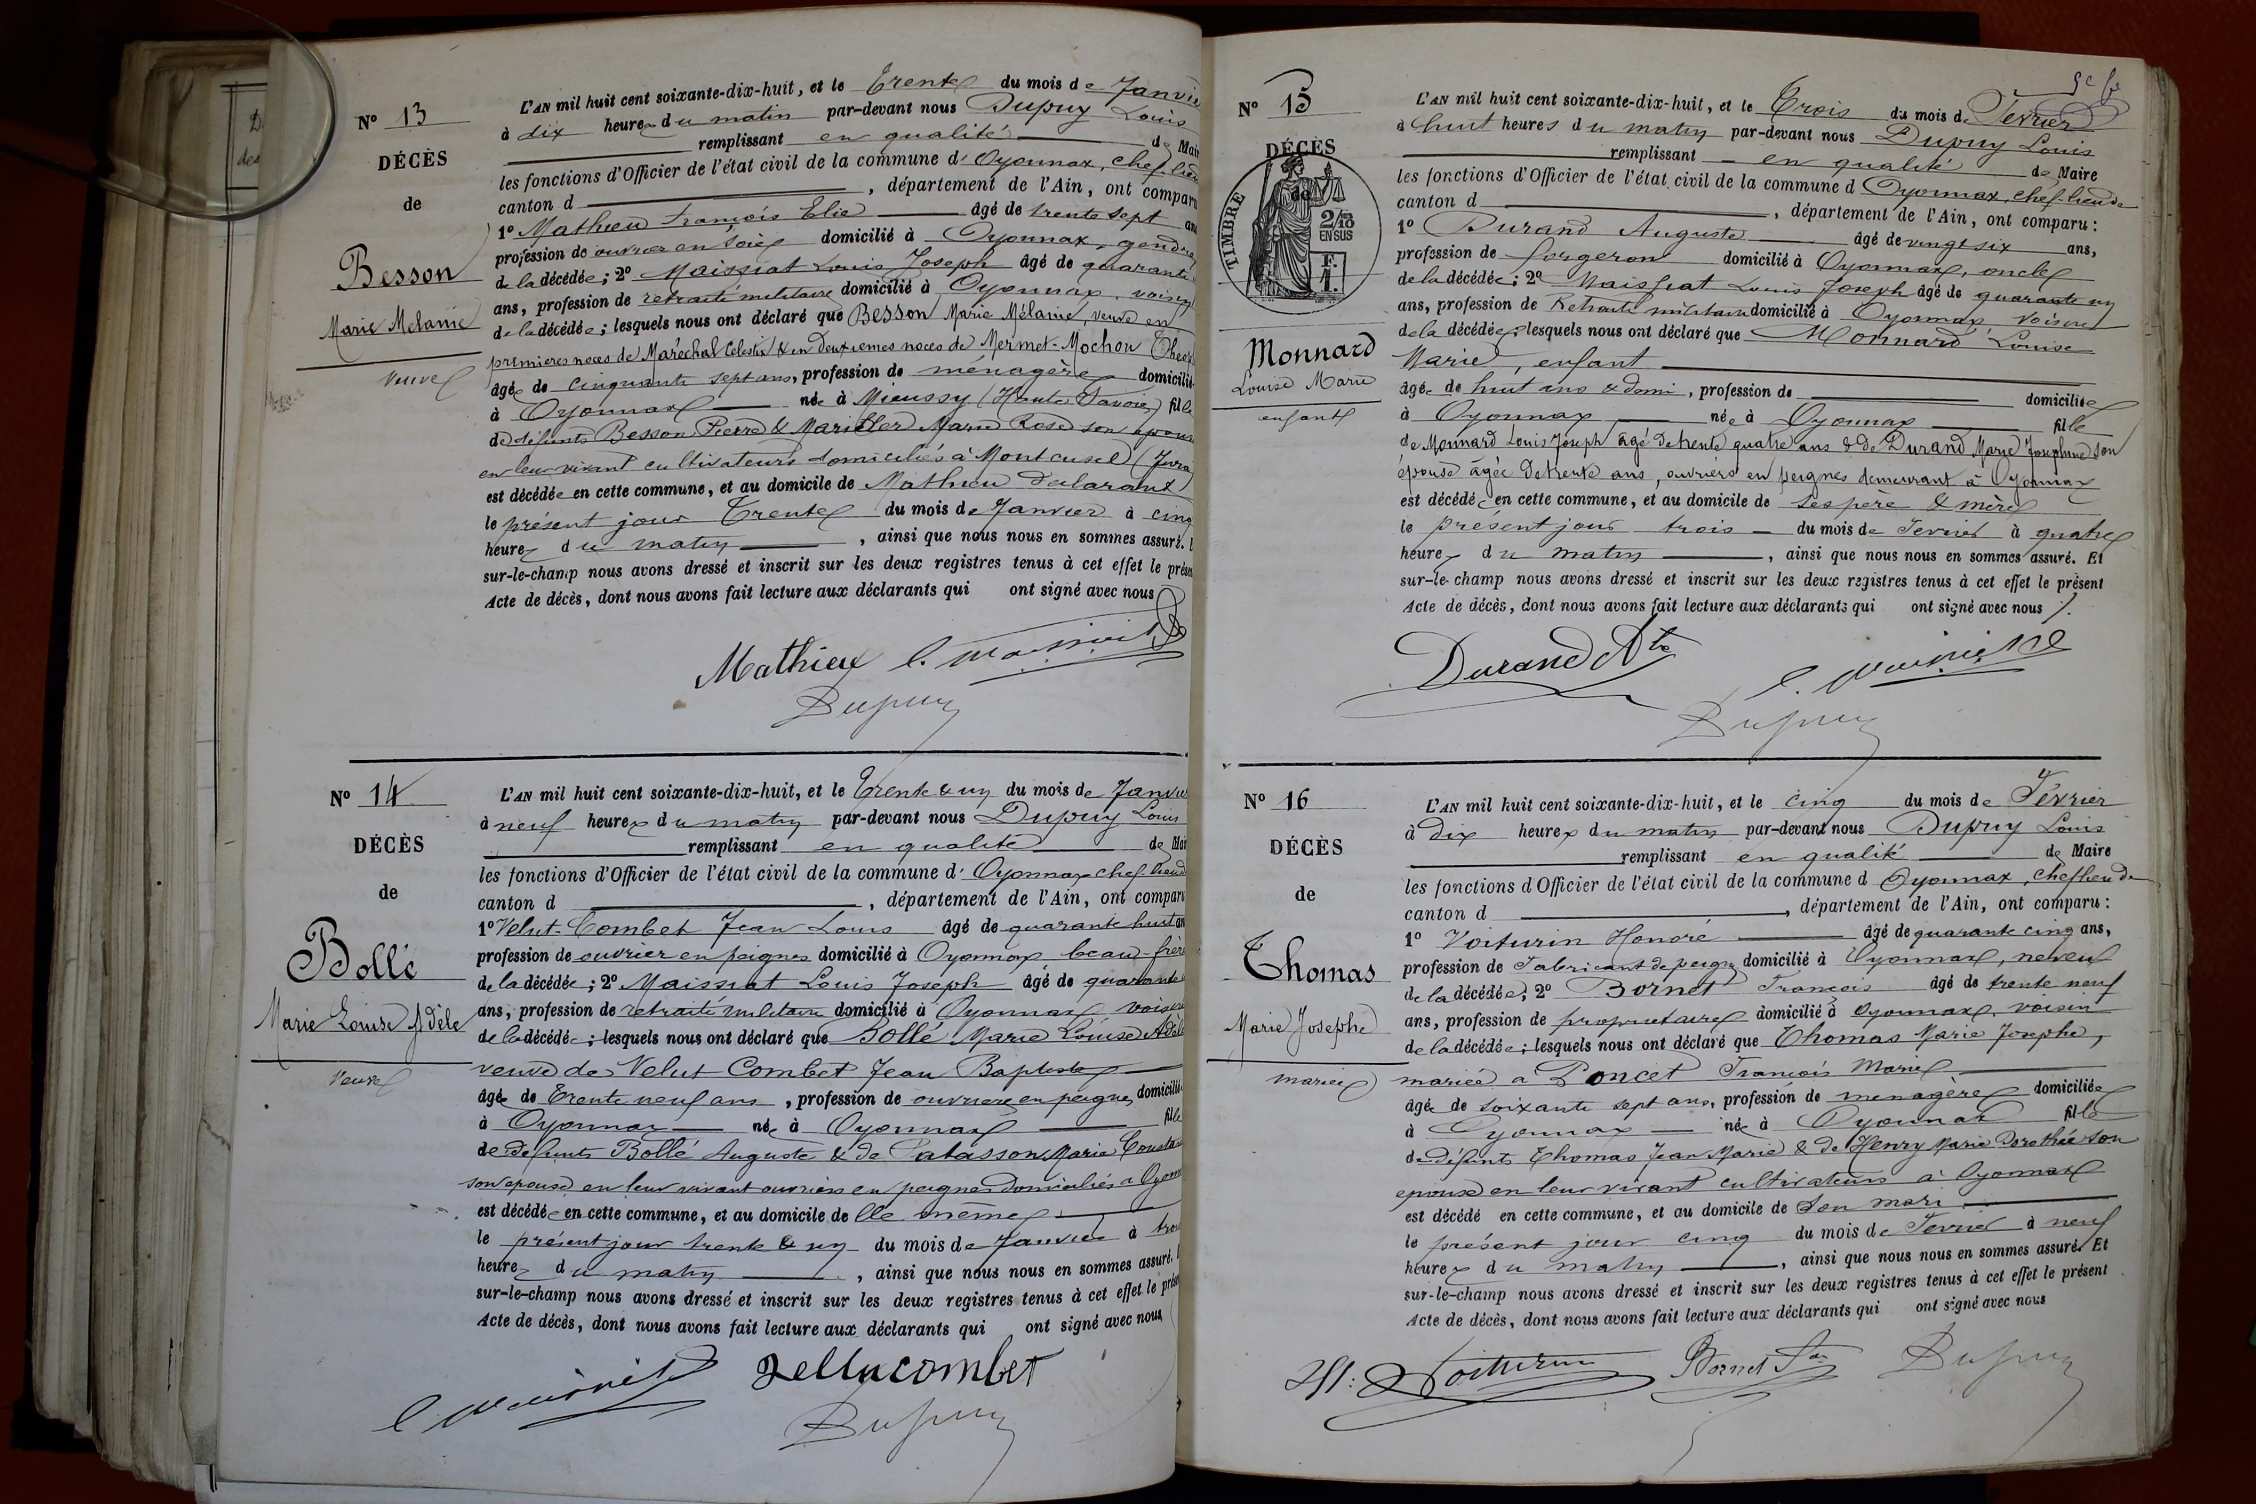 N° 13
DÉCÈS
de
Besson
Marie Mélanie
veuve
L'AN mil huit cent soixante-dix-huit, et le Trente du mois de Janvier
à dix heures du matin par-devant nous Dupuy Louis
remplissant en qualité de Mai
les fonctions d'Officier de l'état civil de la commune d'Oyonnax, chef-lieu
canton d , département de l'Ain, ont comparu
1° Mathieu François Elie âgé de trente sept ans
profession de ouvrier en soie domicilié à Oyonnax, gendre
de la décédée; 2° Maissiat Louis Joseph âgé de quarante
ans, profession de retraité militaire domicilié à Oyonnax, voisin
de la décédée; lesquels nous ont déclaré que Besson Marie Mélanie, veuve en
premières noces de Maréchal Célestin & en deuxièmes noces de Mermet-Mochon
âgée de cinquante sept ans, profession de ménagère domicilié
à Oyonnax née à Mieussy (Haute Savoie) fille
de défunts Besson Pierre & Marie Rose son épouse
en leur vivant cultivateurs domiciliés à Montcusel (Jura)
est décédée en cette commune, et au domicile de Mathieu déclarant
le présent jour Trente du mois de Janvier à cinq
heures du matin , ainsi que nous nous en sommes assuré.
sur-le-champ nous avons dressé et inscrit sur les deux registres tenus à cet effet le présen
Acte de décès, dont nous avons fait lecture aux déclarants qui ont signé avec nous
Mathieu L. Maissiat
Dupuy
N° 14
DÉCÈS
de
Bollé
Marie Louise Adèle
veuve
L'AN mil huit cent soixante-dix-huit, et le Trente & un du mois de Janvier
à neuf heures du matin par-devant nous Dupuy Louis
remplissant en qualité de Mai
les fonctions d'Officier de l'état civil de la commune d'Oyonnax chef-lieu d
canton d , département de l'Ain, ont comparu
1° Velut-Combet Jean Louis âgé de quarante huit ans
profession de ouvrier en peignes domicilié à Oyonnax beau-frère
de la décédée; 2° Maissiat Louis Joseph âgé de quarante
ans, profession de retraité militaire domicilié à Oyonnax voisin
de la décédée; lesquels nous ont déclaré que Bollé Marie Louise Adèle
veuve de Velut Combet Jean Baptiste
âgée de Trente neuf ans, profession de ouvrière en peignes domicilié
à Oyonnax née à Oyonnax fille
de défunts Bollé Auguste & de Patasson Marie
son épouse en leur vivant ouvriers en peignes domiciliés à Oyonnax
est décédée en cette commune, et au domicile de elle même
le présent jour trente & un du mois de Janvier à trois
heures du matin , ainsi que nous nous en sommes assuré.
sur-le-champ nous avons dressé et inscrit sur les deux registres tenus à cet effet le prése
Acte de décès, dont nous avons fait lecture aux déclarants qui ont signé avec nous
L. Maissiat Vellucombet
Dupuy
N° 15
DÉCÈS
de
TIMBRE
2/10
EN SUS
F.
1.
Monnard
Louise Marie
enfant
L'AN mil huit cent soixante-dix-huit, et le Trois du mois de Fevrier
à huit heures du matin par-devant nous Dupuy Louis
remplissant en qualité de Maire
les fonctions d'Officier de l'état civil de la commune d Oyonnax, chef-lieu de
canton d , département de l'Ain, ont comparu:
1° Durand Auguste âgé de vingt six ans,
profession de forgeron domicilié à Oyonnax, oncle
de la décédée; 2° Maissiat Louis Joseph âgé de quarante un
ans, profession de Retraité militaire domicilié à Oyonnax voisin
de la décédée; lesquels nous ont déclaré que Monnard Louise
Marie, enfant
âgée de huit ans & demi, profession de domiciliée
à Oyonnax née à Oyonnax fille
de Monnard Louis Joseph âgé de trente quatre ans & de Durand Marie Josephine son
épouse âgée de trente ans, ouvriers en peignes demeurant à Oyonnax
est décédée en cette commune, et au domicile de ses père & mère
le présent jour trois du mois de Fevrier à quatre
heures du matin , ainsi que nous nous en sommes assuré. Et
sur-le-champ nous avons dressé et inscrit sur les deux registres tenus à cet effet le présent
Acte de décès, dont nous avons fait lecture aux déclarants qui ont signé avec nous
Durand Ate L. Maissiat
Dupuy
N° 16
DÉCÈS
de
Thomas
Marie Josephe
mariée
L'AN mil huit cent soixante-dix-huit, et le cinq du mois de Février
à dix heures du matin par-devant nous Dupuy Louis
remplissant en qualité de Maire
les fonctions d'Officier de l'état civil de la commune d Oyonnax, chef lieu de
canton d , département de l'Ain, ont comparu:
1° Voiturin Honoré âgé de quarante cinq ans,
profession de Fabricant de peignes domicilié à Oyonnax, neveu
de la décédée; 2° Bornet François âgé de trente neuf
ans, profession de propriétaire domicilié à Oyonnax, voisin
de la décédée; lesquels nous ont déclaré que Thomas Marie Josephe,
mariée à Poncet François Marie
âgée de soixante sept ans, profession de ménagère domiciliée
à Oyonnax née à Oyonnax fille
de défunts Thomas Jean Marie & de Henry Marie Dorothée son
épouse en leur vivant cultivateurs à Oyonnax
est décédé en cette commune, et au domicile de son mari
le présent jour cinq du mois de Fevrier à neuf
heures du matin , ainsi que nous nous en sommes assuré. Et
sur-le-champ nous avons dressé et inscrit sur les deux registres tenus à cet effet le présent
Acte de décès, dont nous avons fait lecture aux déclarants qui ont signé avec nous
Voiturin Bornet Dupuy